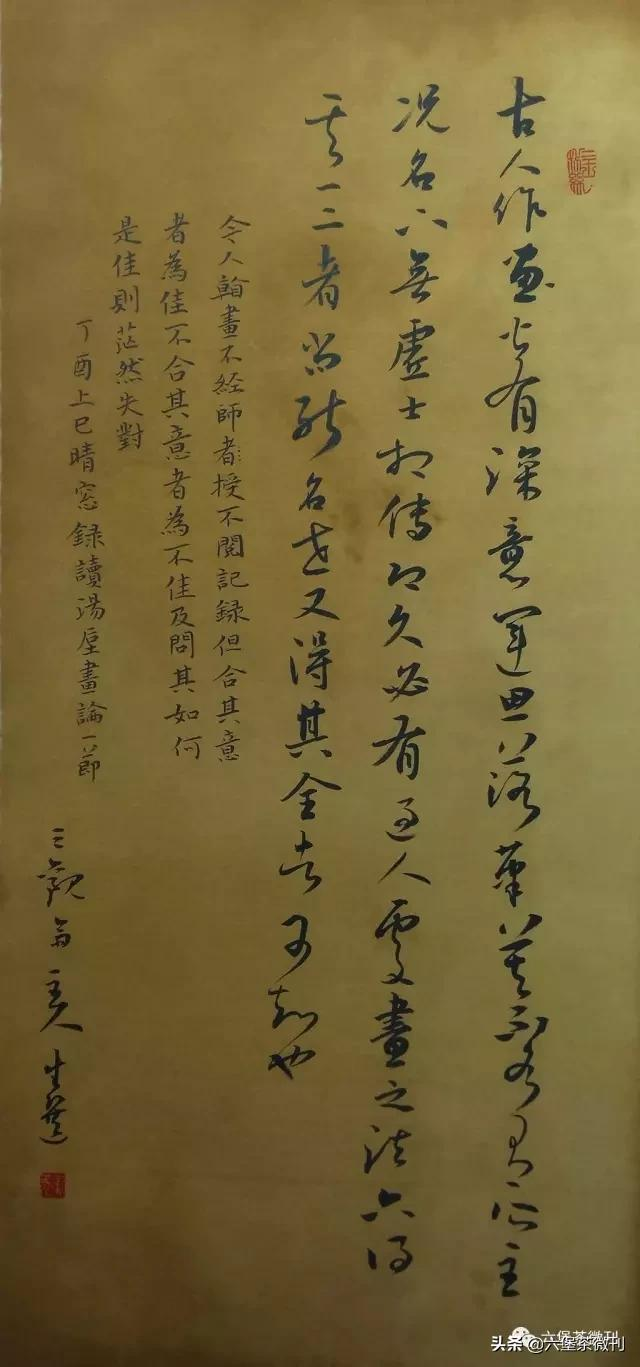 古人作畫皆有深意運思落筆莫不各有所主
况名下無虛士相傳既久必有過人處畫之法六得
其一二者尚能名世又得其全者可知也
今人翰畫不經師者授不閱記録但合其意
者為佳不合其意者為不佳及問其如何
是佳則茫然失對
丁酉上巳晴窓録讀湯垕畫論一節
三觀齋主人
六堡茶微刊
头条@六堡茶微刊